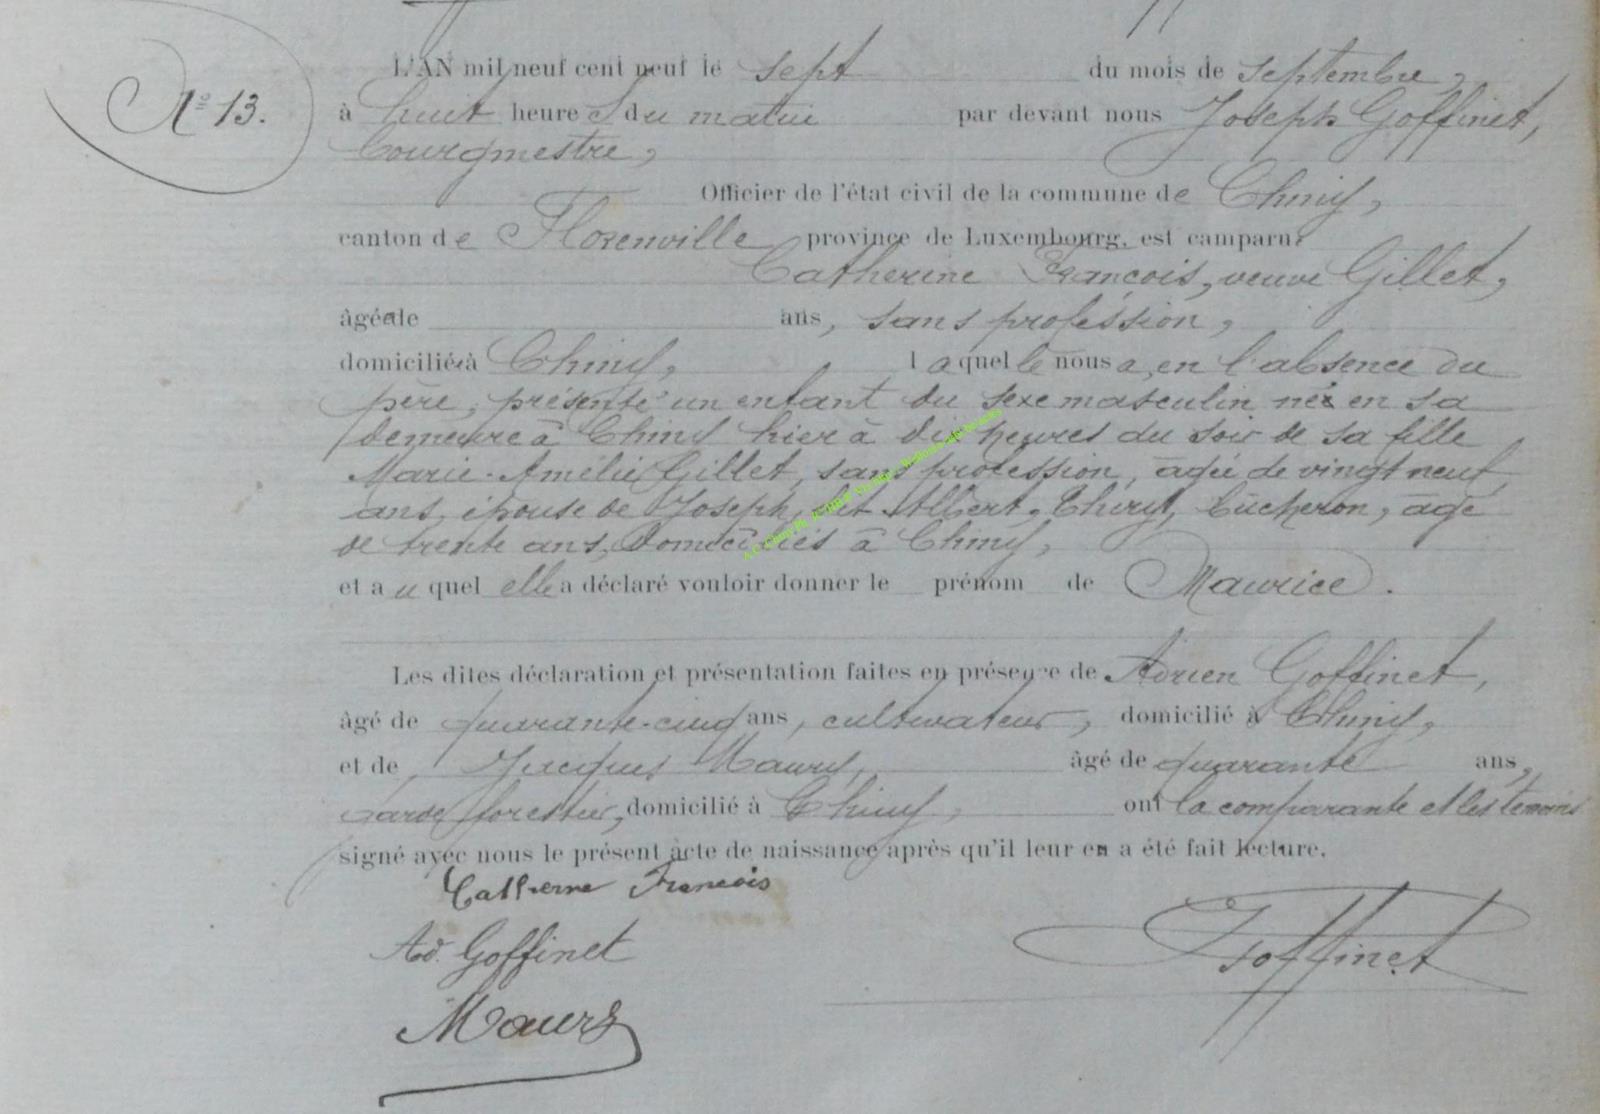 L'AN mil neuf cent neuf le sept du mois de septembre,
N° 13.
à huit heures du matin par devant nous Joseph Goffinet,
bourgmestre,
Officier de l'état civil de la commune de Chiny,
canton de Florenville province de Luxembourg, est camparue
Catherine François, veuve Gillet,
âgée de ans, sans profession,
domiciliée à Chiny, laquelle nous a, en l'absence du
père, présenté un enfant du sexe masculin né en sa
demeure à Chiny hier à dix heures du soir de sa fille
Marie-Amélie Gillet, sans profession, âgée de vingt neuf
ans, épouse de Joseph, dit Albert, Thiry, bûcheron, âgé
de trente ans, domiciliés à Chiny,
et auquel elle a déclaré vouloir donner le prénom de Maurice.
Les dites déclaration et présentation faites en présence de Adrien Goffinet,
âgé de quarante-cinq ans, cultivateur, domicilié à Chiny,
et de Jacques Maury, âgé de quarante ans,
garde forestier, domicilié à Chiny, ont la comparante et les témoins
signé avec nous le présent acte de naissance après qu'il leur en a été fait lecture.
Catherine Francois
Ad. Goffinet
JGoffinet
Maury